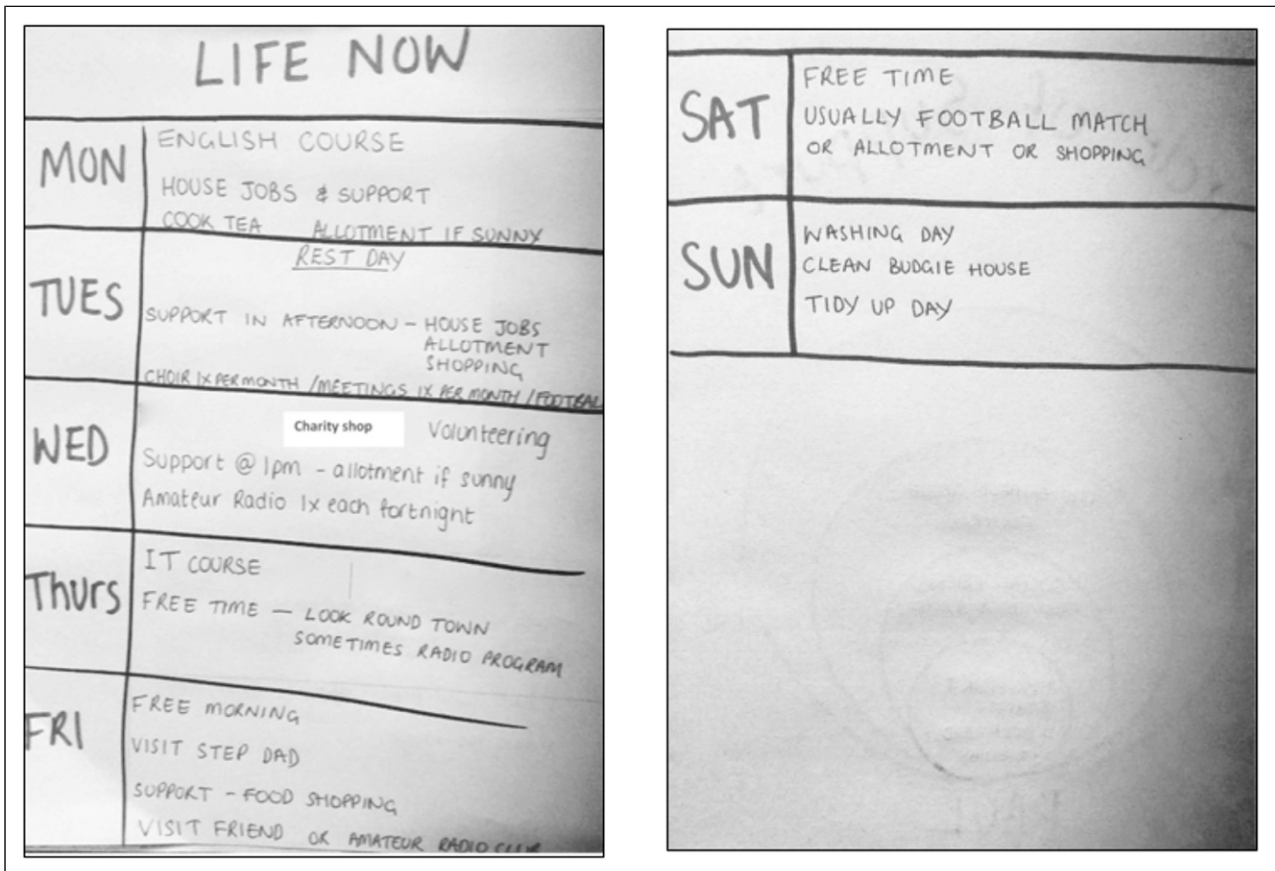 LIFE NOW
MON
ENGLISH COURSE
HOUSE JOBS & SUPPORT
COOK TEA ALLOTMENT IF SUNNY
TUES
REST DAY
SUPPORT IN AFTERNOON – HOUSE JOBS
ALLOTMENT
SHOPPING
CHOIR 1X PER MONTH / MEETINGS 1X PER MONTH / FOOTBALL
WED
Charity shop Volunteering
Support @ 1pm – allotment if sunny
Amateur Radio 1x each fortnight
Thurs
IT COURSE
FREE TIME – LOOK ROUND TOWN
SOMETIMES RADIO PROGRAM
FRI
FREE MORNING
VISIT STEP DAD
SUPPORT – FOOD SHOPPING
VISIT FRIEND OR AMATEUR RADIO CLUB
SAT
FREE TIME
USUALLY FOOTBALL MATCH
OR ALLOTMENT OR SHOPPING
SUN
WASHING DAY
CLEAN BUDGIE HOUSE
TIDY UP DAY